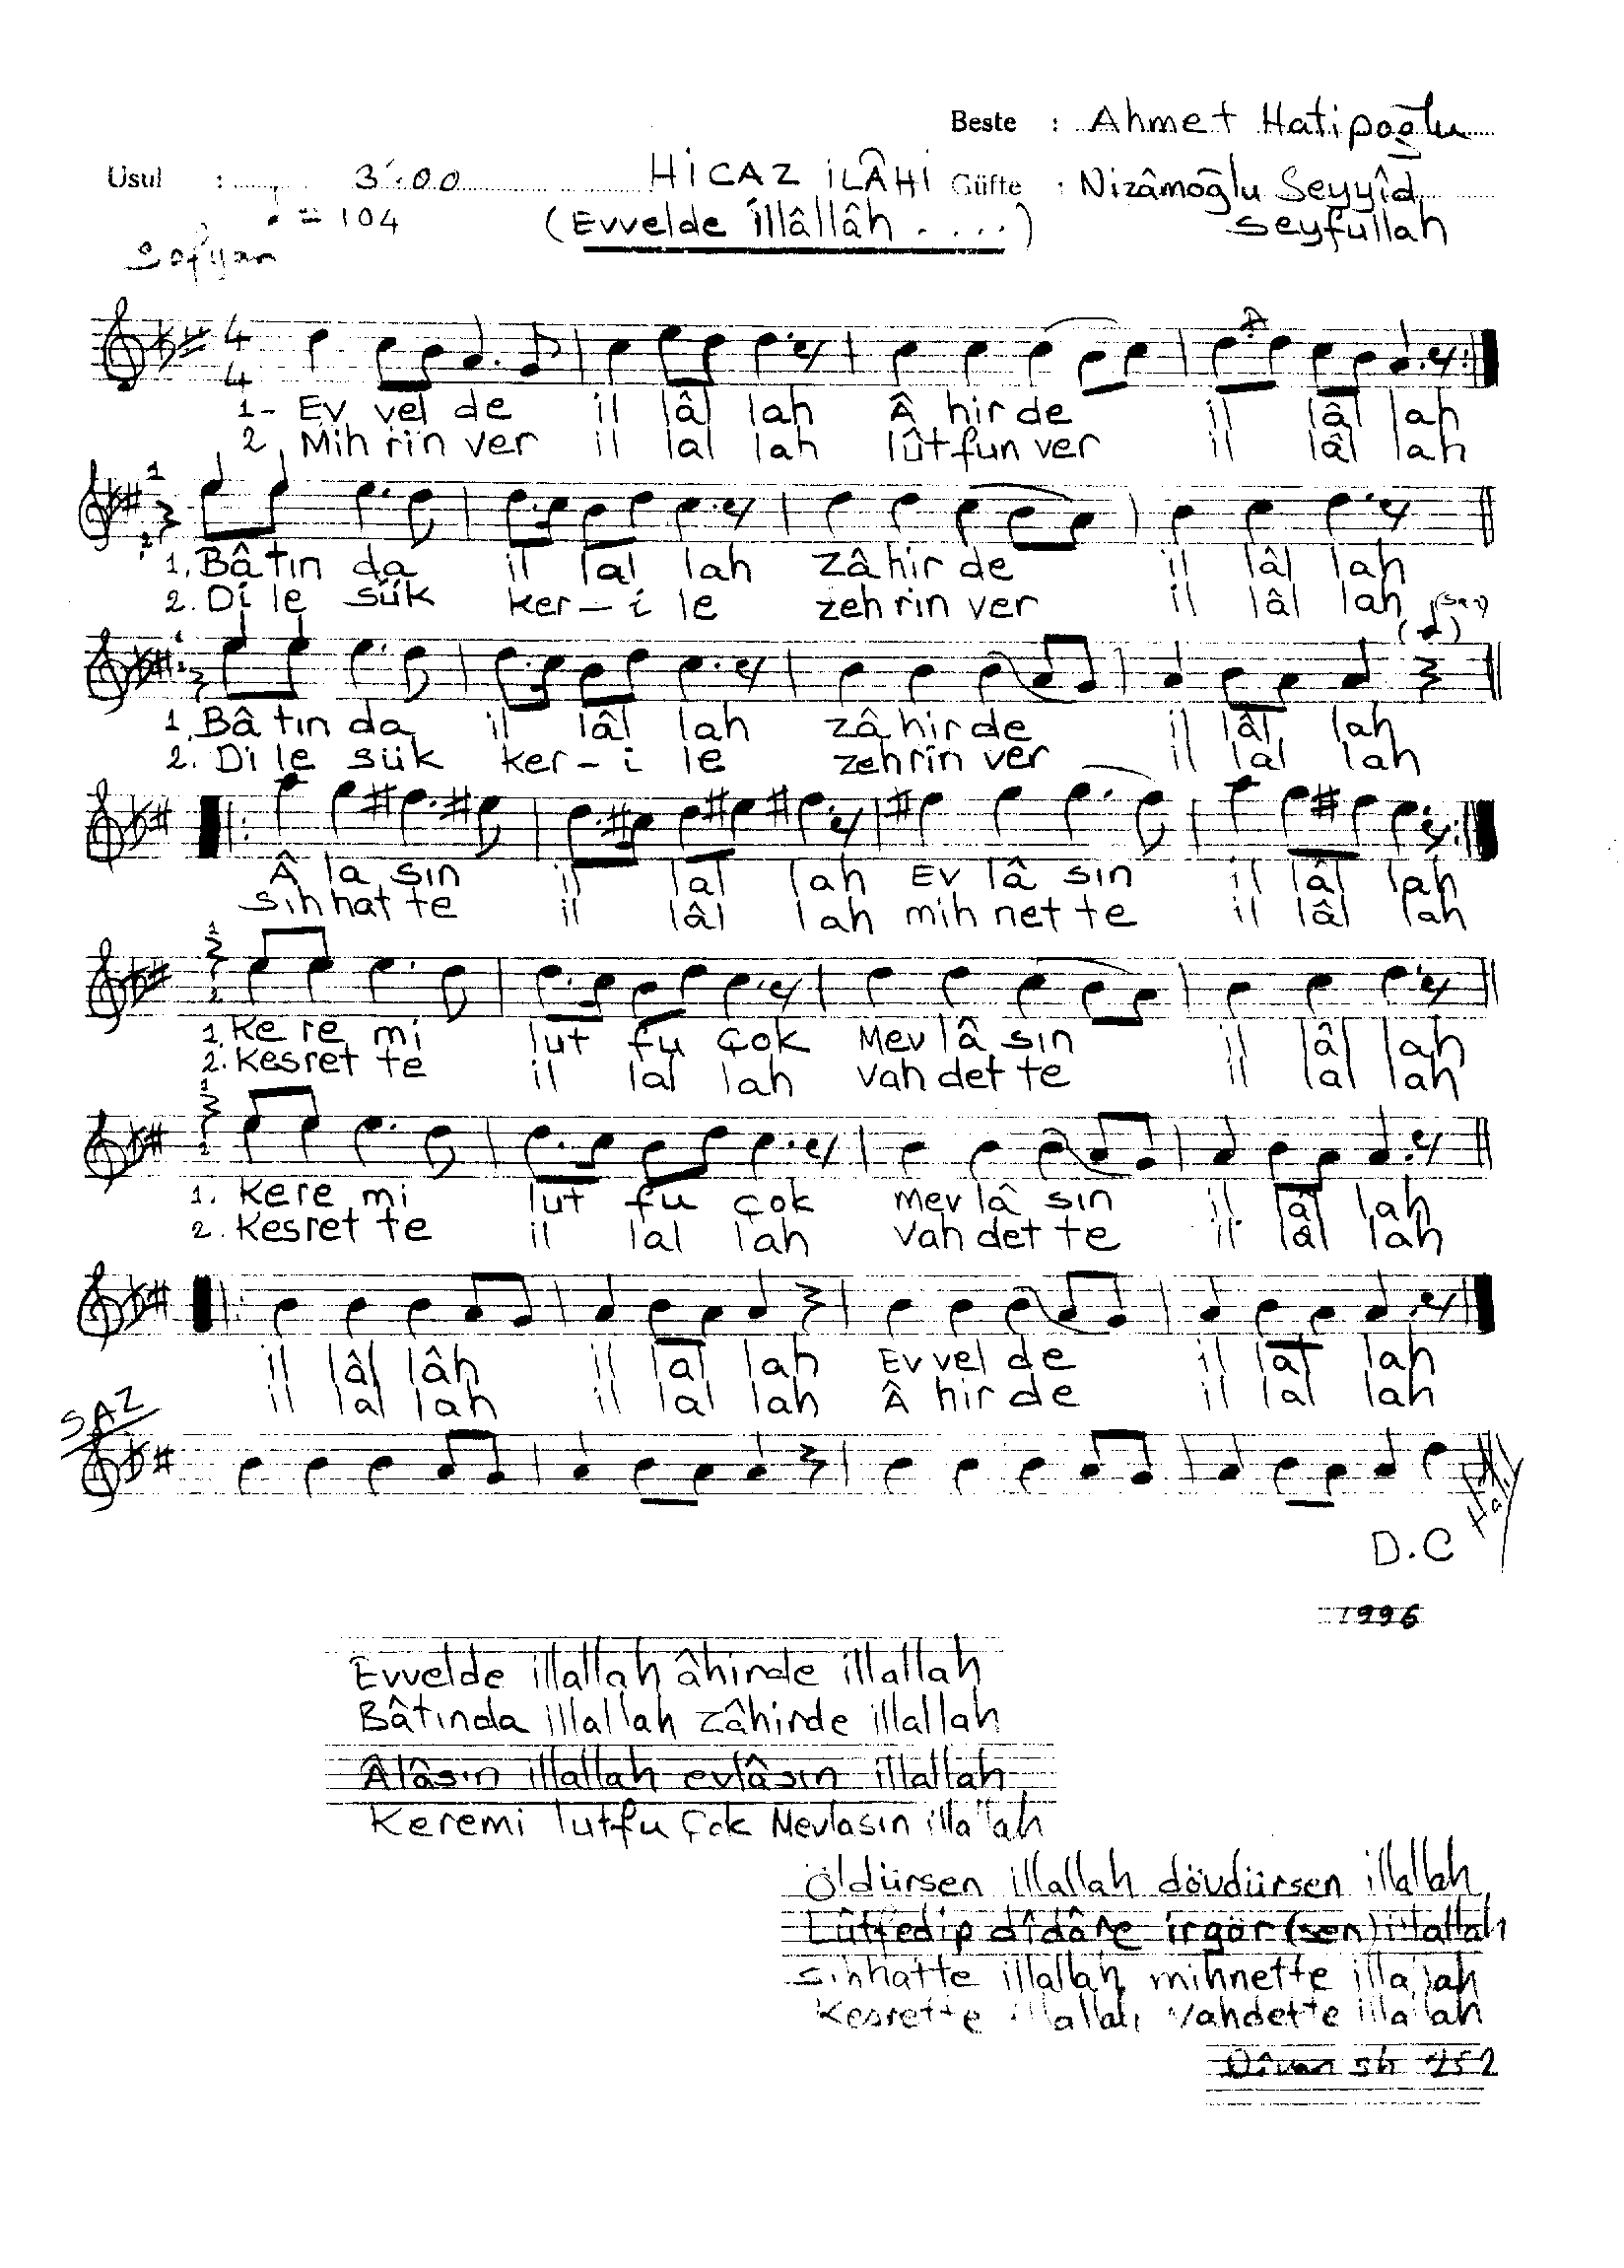 Beste : Ahmet Hatipoğlu
Usul : 3'.00 HİCAZ İLÂHİ Güfte : Nizâmoğlu Seyyîd
= 104 (Evvelde İllâllâh . . . .) Seyfullah
Sofyan
4
4
1- Ev vel de il lâl lah Â hir de il lâl lah
2 Mih rin ver il lal lah lûtfun ver il lâl lah
1. Bâ tın da il lal lah zâ hir de il lâl lah
2. Di le sük ker - i le zeh rin ver il lâl lah (saz)
1. Bâ tın da il lâl lah zâ hir de il lâl lah
2. Di le sük ker - i le zeh rin ver il lal lah
Â la sın il lal lah Ev lâ sın il lâl lah
sıh hat te il lâl lah mih net te il lâl lah
1. Ke re mi lut fu çok Mev lâ sın il lâl lah
2. Kesret te il lal lah vah det te il lal lah
1. Ke re mi lut fu çok mev lâ sın il lâl lah
2. Kesret te il lal lah vah det te il lâl lah
il lâl lâh il lal lah Ev vel de il lal lah
il lal lah il lal lah Â hir de il lal lah
SAZ
D.C
1996
Evvelde illallah âhirde illallah
Bâtında illallah zâhirde illallah
Âlâsın illallah evlâsın illallah
Keremi lutfu çok Mevlasın illallah
Öldürsen illallah dövdürsen illallah
Lûtfedip dîdâre irgör (sen) illallah
sıhhatte illallah mihnette illallah
Kesrette illallah vahdette illallah
Dîvan sh 252